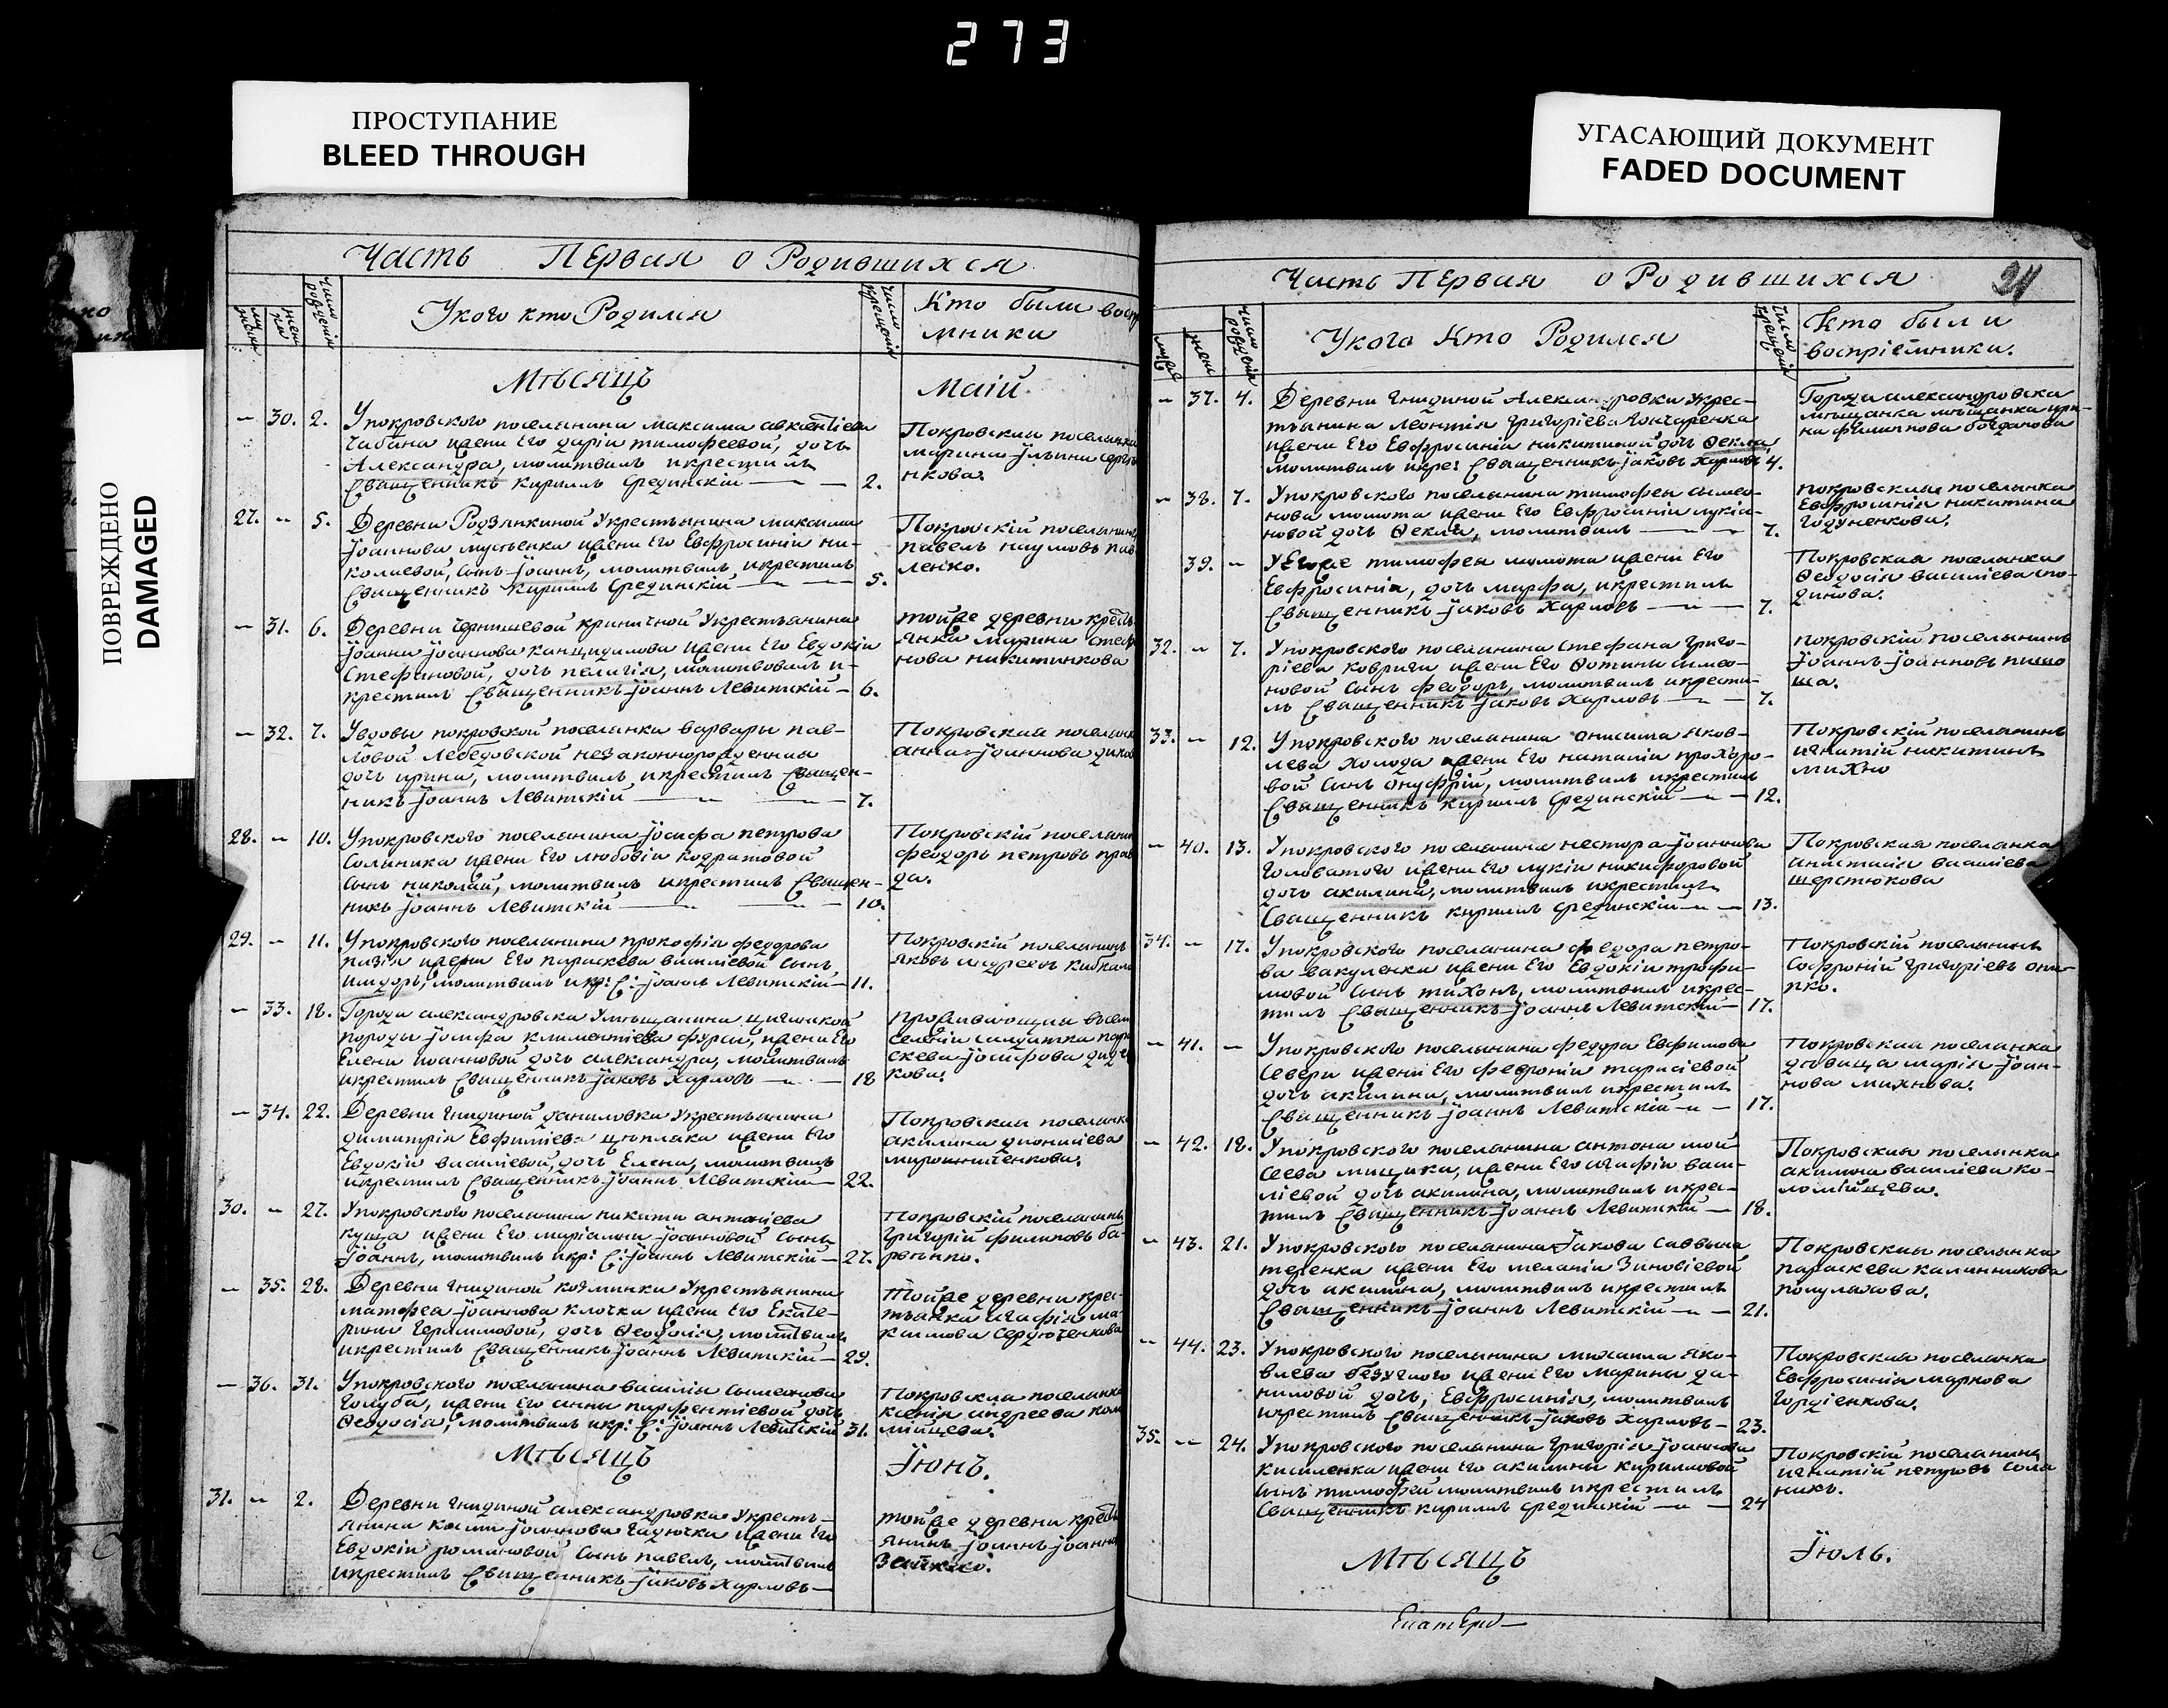 273
ПРОСТУПАНИЕ
BLEED THROUGH
УГАСАЮЩИЙ ДОКУМЕНТ
FADED DOCUMENT
ПОВРЕЖДЕНО
DAMAGED
Часть Первая о Родившихся
число рожденія
Укого кто Родился
число крещенія
Кто были восп
мники
Мѣсяцъ Маіи
— 30. 2. Упокровского поселянина максима авкентіева
чабана ижени Его даріи тимофеевой, дочь
Александра, молитвилъ икрестилъ
Священникъ кириллъ Срединскій — 2.
Покровская поселянка
марина ильина
нкова.
27. — 5. Деревни Родзянкиной Укрестьянина максима
Іоаннова мусіенка ижени Его Евфросиніи ни-
колаевой, сынъ Іоаннъ, молитвилъ икрестилъ
Священникъ кириллъ Срединскій — 5.
Покровскій поселянинъ
павелъ наумовъ пав
ленко.
— 31. 6. Деревни чернышевой криничной Укрестьянина
Іоанна Іоаннова ижени Его Евдокіи
Стефановой, дочь пелагія, молитвовалъ и-
крестилъ Священникъ Іоаннъ Левитскій — 6.
тойже деревни кресть
янка марина стефа
нова никитинкова
— 32. 7. Увдовы покровской поселянки варвары пав-
ловой Лебедовской незаконнорожденная
дочь ирина, молитвилъ икрестилъ Священ-
никъ Іоаннъ Левитскій — 7.
Покровская поселянка
анна Іоаннова
28. — 10. Упокровского поселянина Іосифа петрова
Солиника ижени Его любовіи кодратовой
сынъ николай, молитвилъ икрестилъ Священ-
никъ Іоаннъ Левитскій — 10.
Покровскій поселянинъ
феодоръ петровъ прав
да.
29. — 11. Упокровского поселянина прокофія федорова
ижени Его параскева василіевой сынъ
исидоръ, молитвилъ икр: С: Іоаннъ Левитскій — 11.
Покровскій поселянинъ
Яковъ андреевъ кибкало
— 33. 18. Города александровска Умѣщанина циганской
породы Іосифа климентіева фурси, ижени Его
Елени иоанновой дочь александра, молитвилъ
икрестилъ Священникъ Іаковъ Харловъ — 18
проживающая въсем
селеніи солдатка пара
скева Іосифова
кова.
— 34. 22. Деревни гнидиной даниловка Укрестьянина
димитрія Евфиміева цѣплака ижени Его
Евдокіи василіевой, дочь Елена, молитвилъ
икрестилъ Священникъ Іоаннъ Левитскій — 22.
Покровская поселянка
акилина дионисіева
мирошниченкова.
30. — 27. Упокровского поселянина никити антоніева
куща ижени Его маріамни Іоанновой сынъ
Іоаннъ, молитвилъ икр: С: Іоаннъ Левитскій — 27.
Покровскій поселянинъ
Григорій филиповъ ба-
— 35. 28. Деревни гнидиной козминка Укрестьянина
матфеа Іоаннова клочка ижени Его Екате-
рини Герасимовой, дочь Ѳеодосія, молитвилъ
икрестилъ Священникъ Іоаннъ Левитскій — 29.
Тойже деревни крес-
тьянка агафія ма-
кимова Сердюченкова
— 36. 31. Упокровского поселянина василія сымеонова
Голуба, ижени Его анни парфентіевой дочь
Ѳеодосія, молитвилъ икр: С: Іоаннъ Левитскій 31.
Покровская поселянка
ксенія андреева коло
мійцева.
Мѣсяцъ Іюнь.
31. — 2. Деревни гнидиной александровка Укресть-
янина космы Іоаннова гадючка ижени Его
Евдокіи романовой сынъ павелъ, молитвилъ
икрестилъ Священникъ Іаковъ Харловъ —
тойже деревни кресть
янинъ Іоаннъ Іоанно
Часть Первая о Родившихся
число рожденія
Укого Кто Родился
число крещенія
Кто были
воспріемники.
— 37. 4. Деревни Гнидиной Александровки Укрес-
тьянина Леонтія Григоріева Гончаренка
ижени Его Евфросиніи никитиной дочь Ѳекла,
молитвилъ икре: Священникъ Іаковъ Харловъ 4.
Города александровска
мѣщанка мѣщанка ири-
на филипова богданова
— 38. 7. Упокровского поселянина тимофея сымео-
нова момота ижени Его Евфросиніи лукіа-
новой дочь Ѳекла, молитвилъ — 7.
покровская поселянка
Евфросинія никитина
Годуненкова.
39. — Уегоже тимофея момота ижени Его
Евфросиніи, дочь марфа, икрестилъ
Священникъ Іаковъ Харловъ — 7.
Покровская поселянка
Ѳеодосія василіева спо-
динова.
32. — 7. Упокровского поселянина Стефана Григо-
ріева ковриги ижени Его Фотини сымео-
новой сынъ феодоръ, молитвилъ икрести-
лъ Священникъ Іаковъ Харловъ — 7.
покровскій поселянинъ
Іоаннъ Іоанновъ
ша.
33. — 12. Упокровского поселянина онисима яков-
лева Холода ижени Его наталіи прохоро-
вой сынъ онуфрій, молитвилъ икрестилъ
Священникъ кириллъ Срединскій — 12.
Покровскій поселянинъ
игнатій никитинъ
михно
— 40. 13. Упокровского поселянина нестора Іоаннова
Головатого ижени Его лукіи никифоровой
дочь акилина, молитвилъ икрестилъ
Священникъ кириллъ Срединскій — 13.
Покровская поселянка
анастасія василіева
шерстюкова
34. — 17. Упокровского поселянина федора петро-
ва вакуленка ижени Его Евдокіи трофи-
мовой сынъ тихонъ, молитвилъ икрес-
тилъ Священникъ Іоаннъ Левитскій — 17.
Покровскій поселянинъ
Софроній Григоріевъ они-
пко.
— 41. — Упокровского поселянина федора Евфимова
Севери ижени Его февроніи тарасіевой
дочь акилина, молитвилъ икрестилъ
Священникъ Іоаннъ Левитскій — 17.
Покровская поселянка
дѣвица марія Іоан-
нова михнова.
— 42. 18. Упокровского поселянина антона мой-
сеева мищика, ижени Его агафіи васи-
ліевой дочь акилина, молитвилъ икрес-
тилъ Священникъ Іоаннъ Левитскій — 18.
Покровская поселянка
акилина василіева ко-
ломійцева.
— 43. 21. Упокровского поселянина Іакова саввина
теренка ижени Его меланіи Зиновіевой
дочь акилина, молитвилъ икрестилъ
Священникъ Іоаннъ Левитскій — 21.
Покровская поселянка
параскева калинникова
— 44. 23. Упокровского поселянина михаила яко-
влева безуглого ижени Его марина да-
ниловой дочь, Евфросинія, молитвилъ
икрестилъ Священникъ Іаковъ Харловъ — 23.
Покровская поселянка
Евфросинія маркова
Гордіенкова.
35. — 24. Упокровского поселянина Григорія Іоаннова
кисиленка ижени Его акилини кириловой
сынъ тимофей молитвилъ икрестилъ
Священникъ кириллъ Срединскій — 24
Покровскій поселянинъ
игнатій петровъ Соля
никъ.
Мѣсяцъ Іюль.